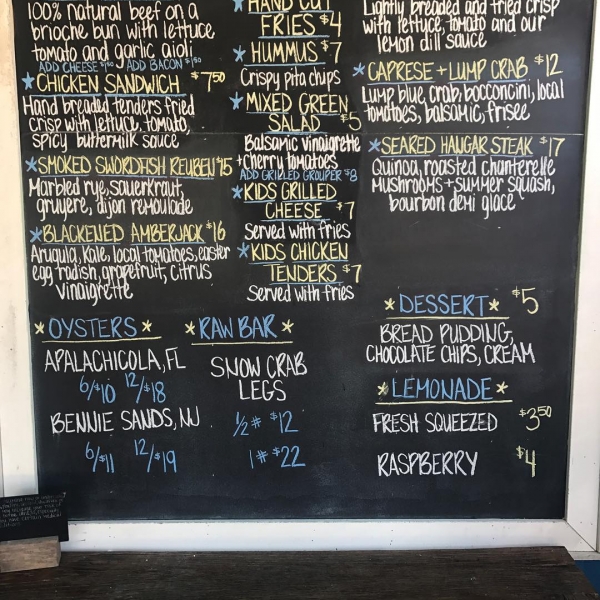 100% natural beef on a
brioche bun with lettuce
tomato and garlic aioli
ADD CHEESE $1.00 ADD BACON $1.50
CHICKEN SANDWICH $7.50
Hand breaded tenders fried
crisp with lettuce, tomato,
spicy buttermilk sauce
SMOKED SWORDFISH REUBEN $15
Marbled rye, sauerkraut,
gruyere, dijon remoulade
BLACKENED AMBERJACK $16
Arugula, Kale, local tomatoes, easter
egg radish, grapefruit, citrus
vinaigrette
HAND CUT
FRIES $4
HUMMUS $7
Crispy pita chips
MIXED GREEN
SALAD $5
Balsamic vinaigrette
+cherry tomatoes
ADD GRILLED GROUPER $8
KIDS GRILLED
CHEESE $7
Served with fries
KIDS CHICKEN
TENDERS $7
Served with fries
Lightly breaded and fried crisp
with lettuce, tomato and our
lemon dill sauce
CAPRESE + LUMP CRAB $12
Lump blue, crab, bocconcini, local
tomatoes, balsamic, frisee
SEARED HANGAR STEAK $17
Quinoa, roasted chanterelle
mushrooms + summer squash,
bourbon demi glace
OYSTERS
APALACHICOLA, FL
6/$10 12/$18
BENNIE SANDS, NJ
6/$11 12/$19
RAW BAR
SNOW CRAB
LEGS
1/2 # $12
1 # $22
DESSERT $5
BREAD PUDDING,
CHOCOLATE CHIPS, CREAM
LEMONADE
FRESH SQUEEZED $3.50
RASPBERRY $4